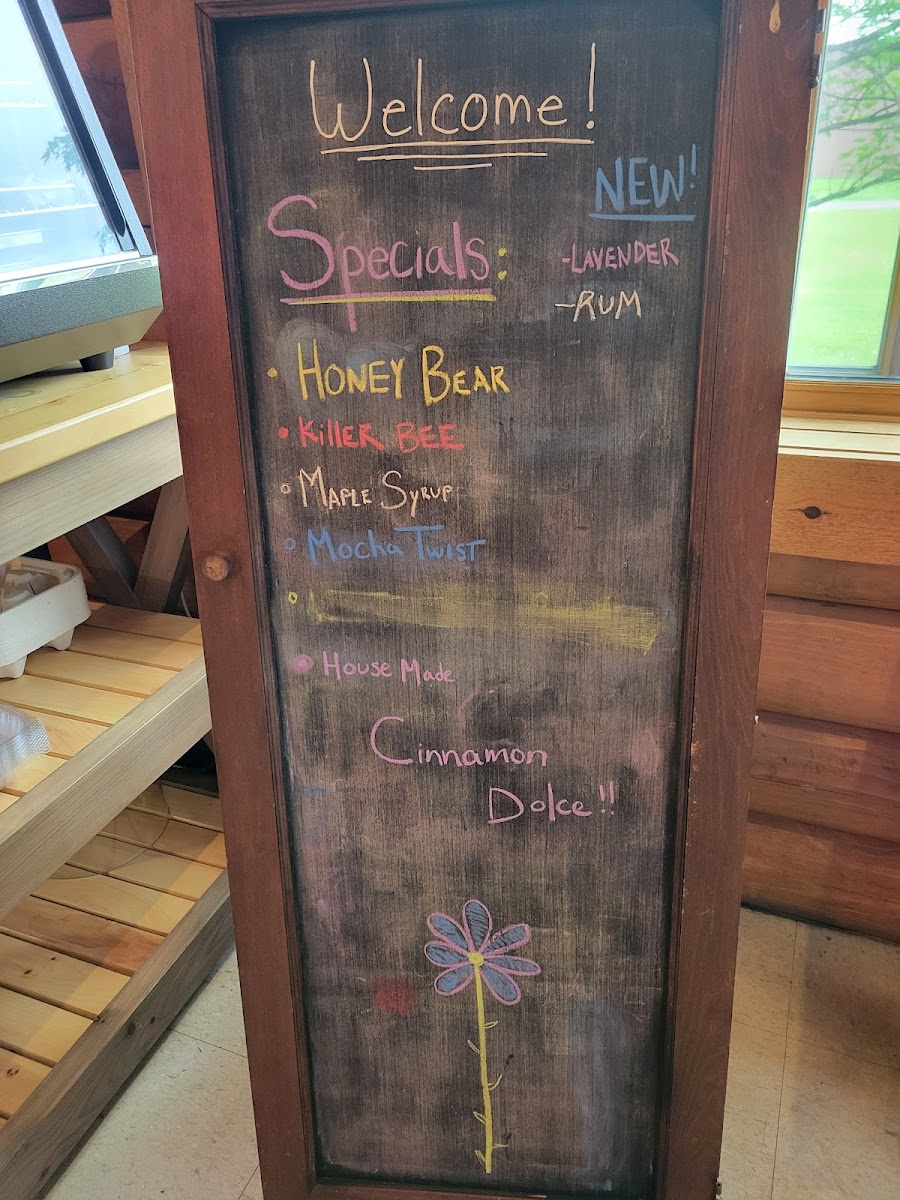 Welcome!
NEW!
-LAVENDER
-RUM
Specials:
• HONEY BEAR
• KiLLER BEE
• MAPLE SYRUP
• Mocha TWIST
• House Made
Cinnamon
Dolce!!